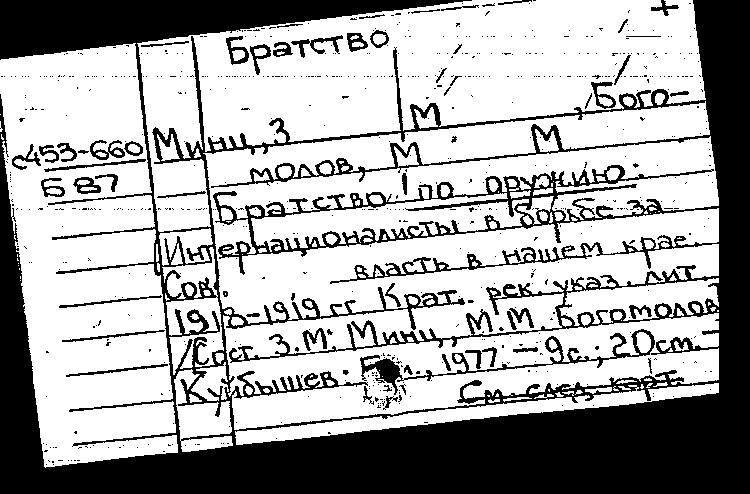 +
Братство
Минц, З М , Бого-
с453-660
молов, М М
Б 87
Братство по оружию:
(Интернационалисты в борьбе за
Сов. власть в нашем крае.
1918-1919 гг Крат. рек. указ. лит.
/Сост. З.М. Минц, М.М. Богомолов
Куйбышев: , 1977. — 9с.; 20см. —
См. след. карт.